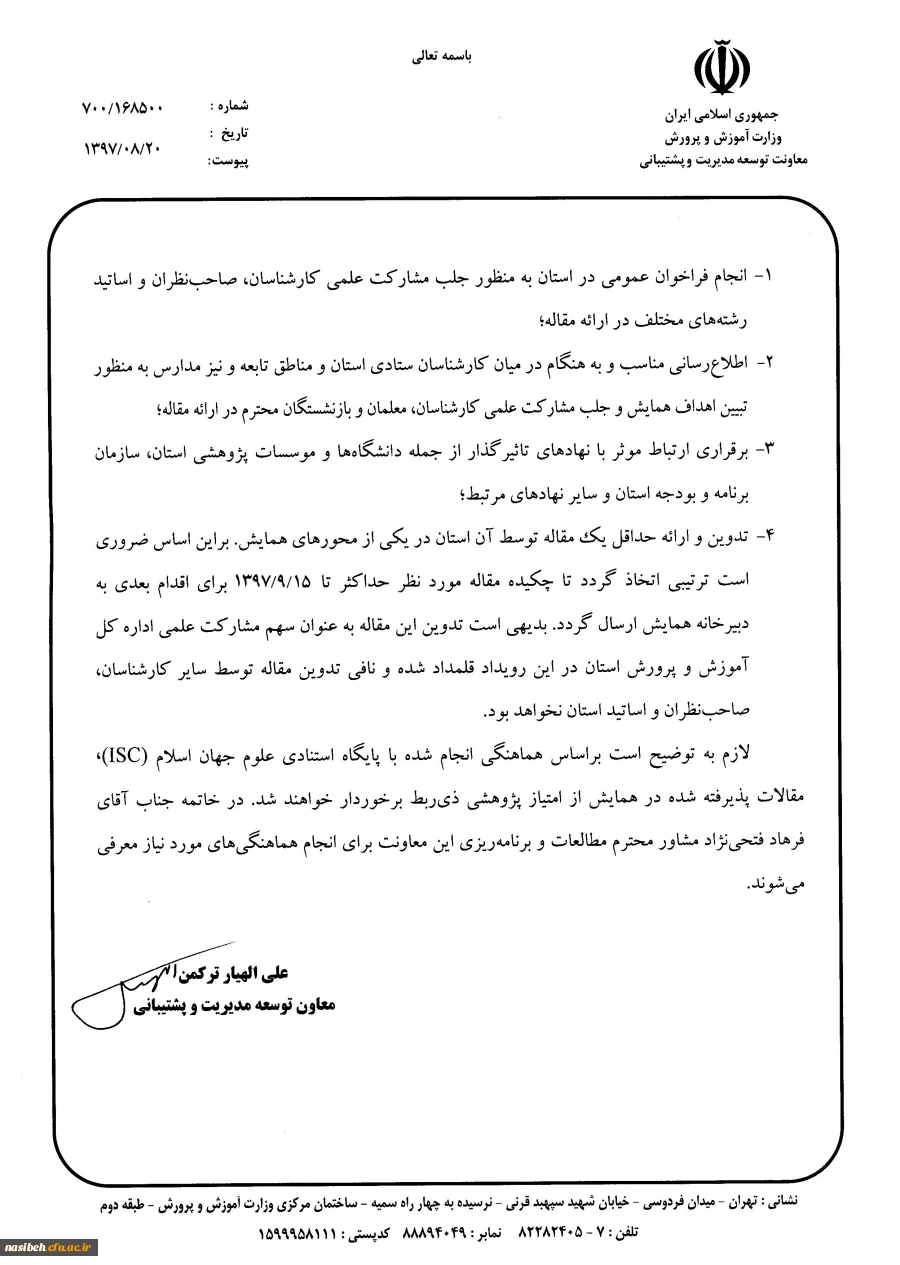 باسمه تعالی
جمهوری اسلامی ایران
وزارت آموزش و پرورش
معاونت توسعه مدیریت و پشتیبانی
شماره : ۷۰۰/۱۶۸۵۰۰
تاریخ : ۱۳۹۷/۰۸/۲۰
پیوست:
۱- انجام فراخوان عمومی در استان به منظور جلب مشارکت علمی کارشناسان، صاحب‌نظران و اساتید
رشته‌های مختلف در ارائه مقاله؛
۲- اطلاع‌رسانی مناسب و به هنگام در میان کارشناسان ستادی استان و مناطق تابعه و نیز مدارس به منظور
تبیین اهداف همایش و جلب مشارکت علمی کارشناسان، معلمان و بازنشستگان محترم در ارائه مقاله؛
۳- برقراری ارتباط موثر با نهادهای تاثیرگذار از جمله دانشگاه‌ها و موسسات پژوهشی استان، سازمان
برنامه و بودجه استان و سایر نهادهای مرتبط؛
۴- تدوین و ارائه حداقل یک مقاله توسط آن استان در یکی از محورهای همایش. براین اساس ضروری
است ترتیبی اتخاذ گردد تا چکیده مقاله مورد نظر حداکثر تا ۱۳۹۷/۹/۱۵ برای اقدام بعدی به
دبیرخانه همایش ارسال گردد. بدیهی است تدوین این مقاله به عنوان سهم مشارکت علمی اداره کل
آموزش و پرورش استان در این رویداد قلمداد شده و نافی تدوین مقاله توسط سایر کارشناسان،
صاحب‌نظران و اساتید استان نخواهد بود.
لازم به توضیح است براساس هماهنگی انجام شده با پایگاه استنادی علوم جهان اسلام (ISC)،
مقالات پذیرفته شده در همایش از امتیاز پژوهشی ذی‌ربط برخوردار خواهند شد. در خاتمه جناب آقای
فرهاد فتحی‌نژاد مشاور محترم مطالعات و برنامه‌ریزی این معاونت برای انجام هماهنگی‌های مورد نیاز معرفی
می‌شوند.
علی الهیار ترکمن
معاون توسعه مدیریت و پشتیبانی
نشانی : تهران - میدان فردوسی - خیابان شهید سپهبد قرنی - نرسیده به چهار راه سمیه - ساختمان مرکزی وزارت آموزش و پرورش - طبقه دوم
تلفن : ۷ - ۸۲۲۸۲۴۰۵ نمابر : ۸۸۸۹۴۰۴۹ کدپستی : ۱۵۹۹۹۵۸۱۱۱
nasibeh.cfu.ac.ir